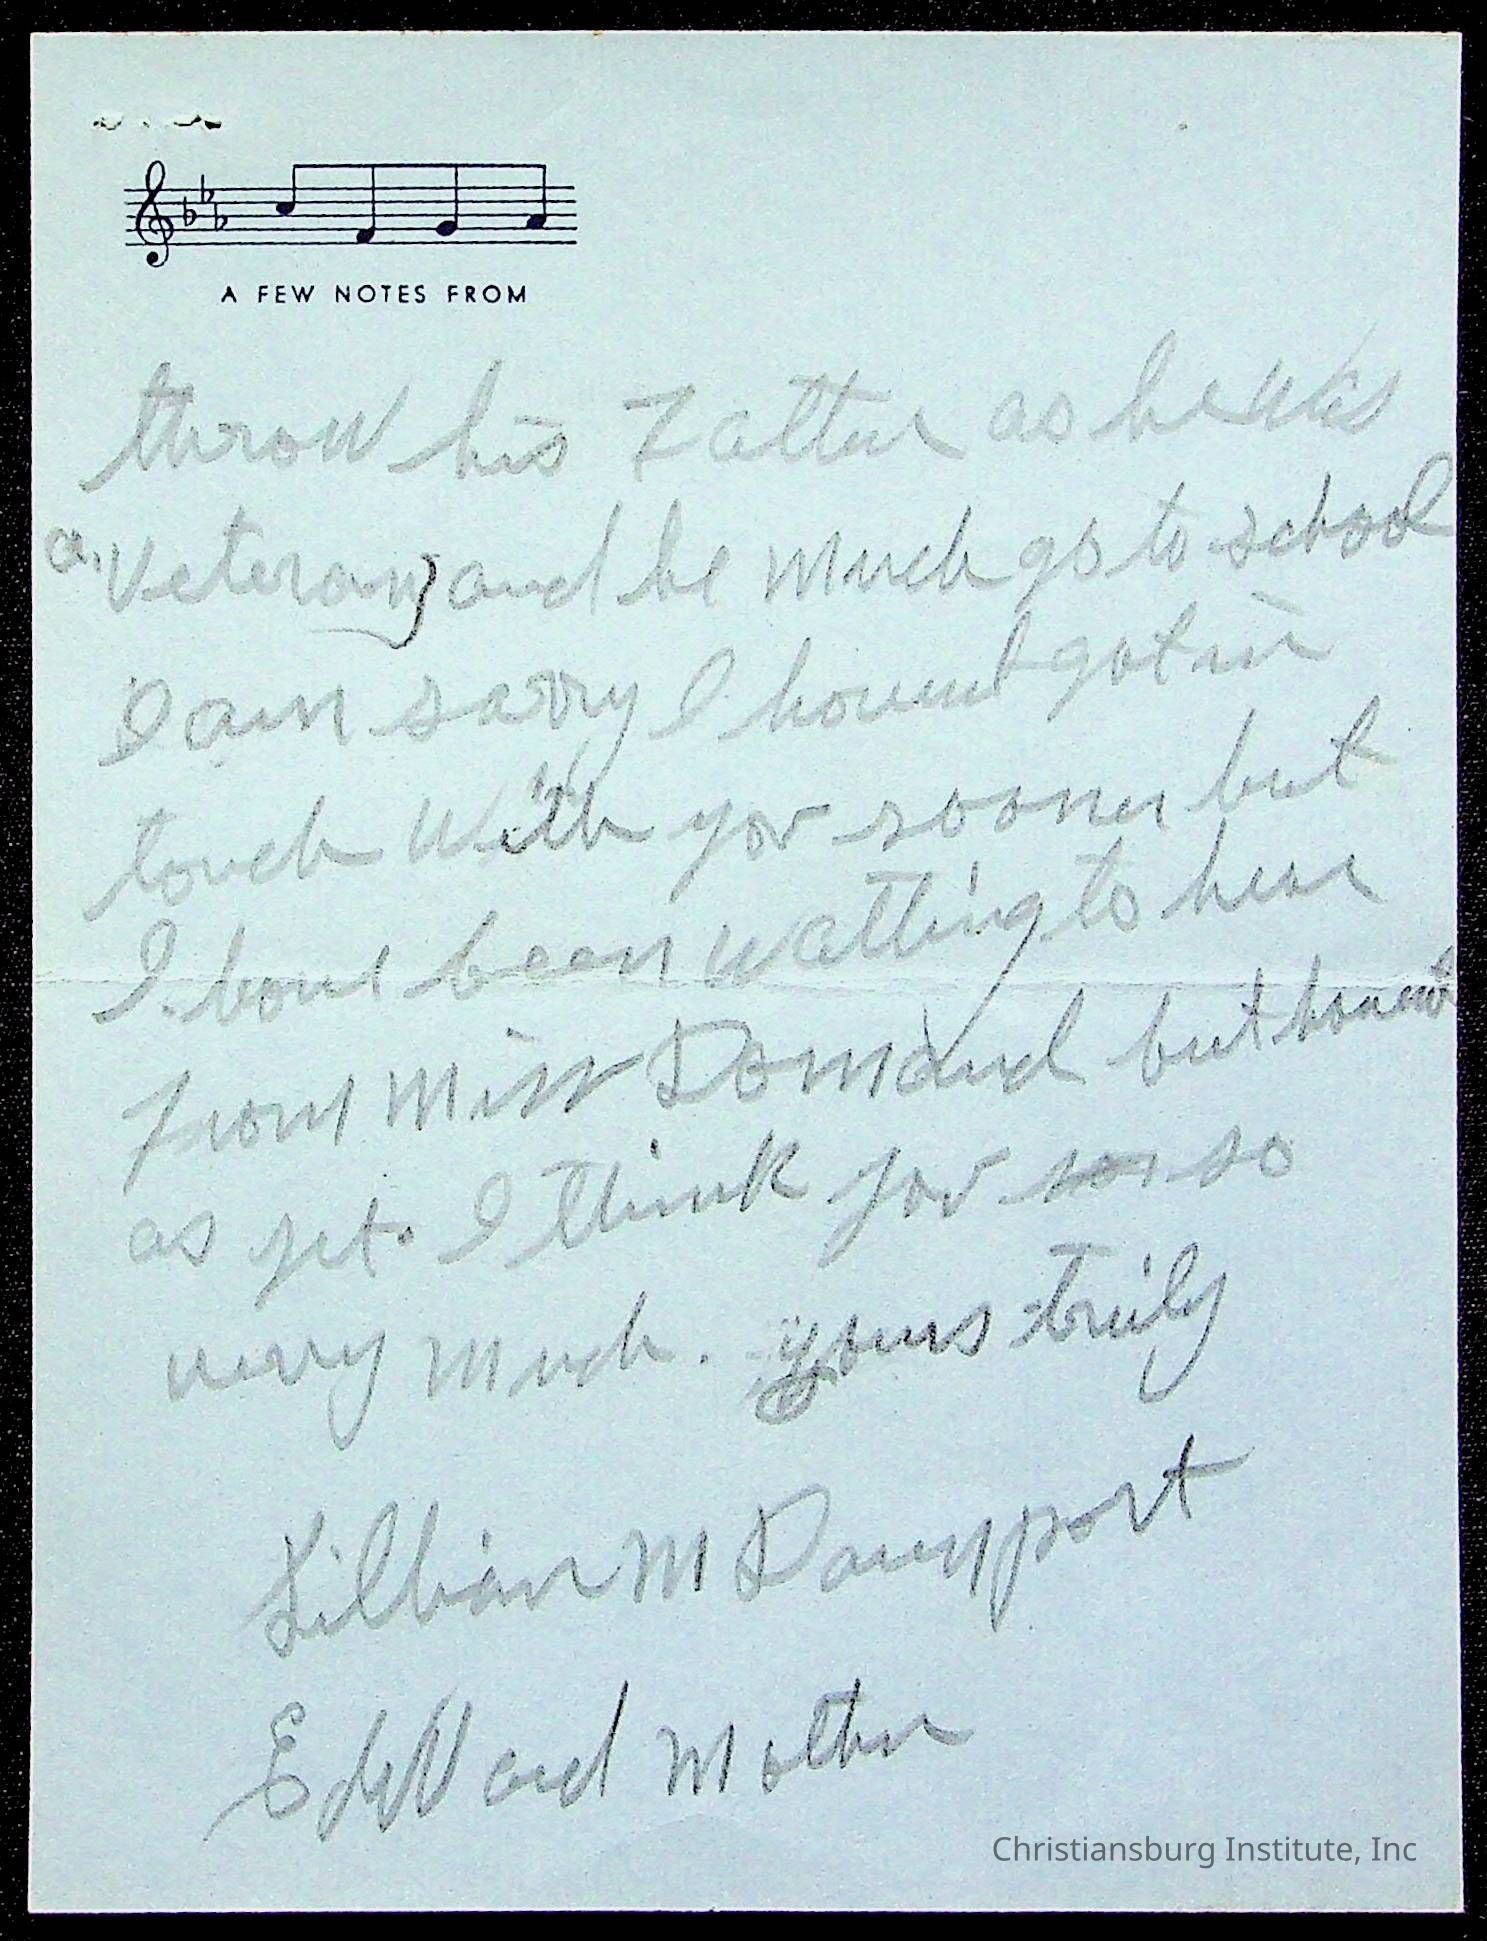 A FEW NOTES FROM
throw his Father as he was
a veteran and he much go to school
I am sorry I havent got in
touch with you sooner but
I have been watting to hear
from Miss but havent
as yet. I think you so
very much. yours truly
Lillian M Davenport
Edward Mother
Christiansburg Institute, Inc